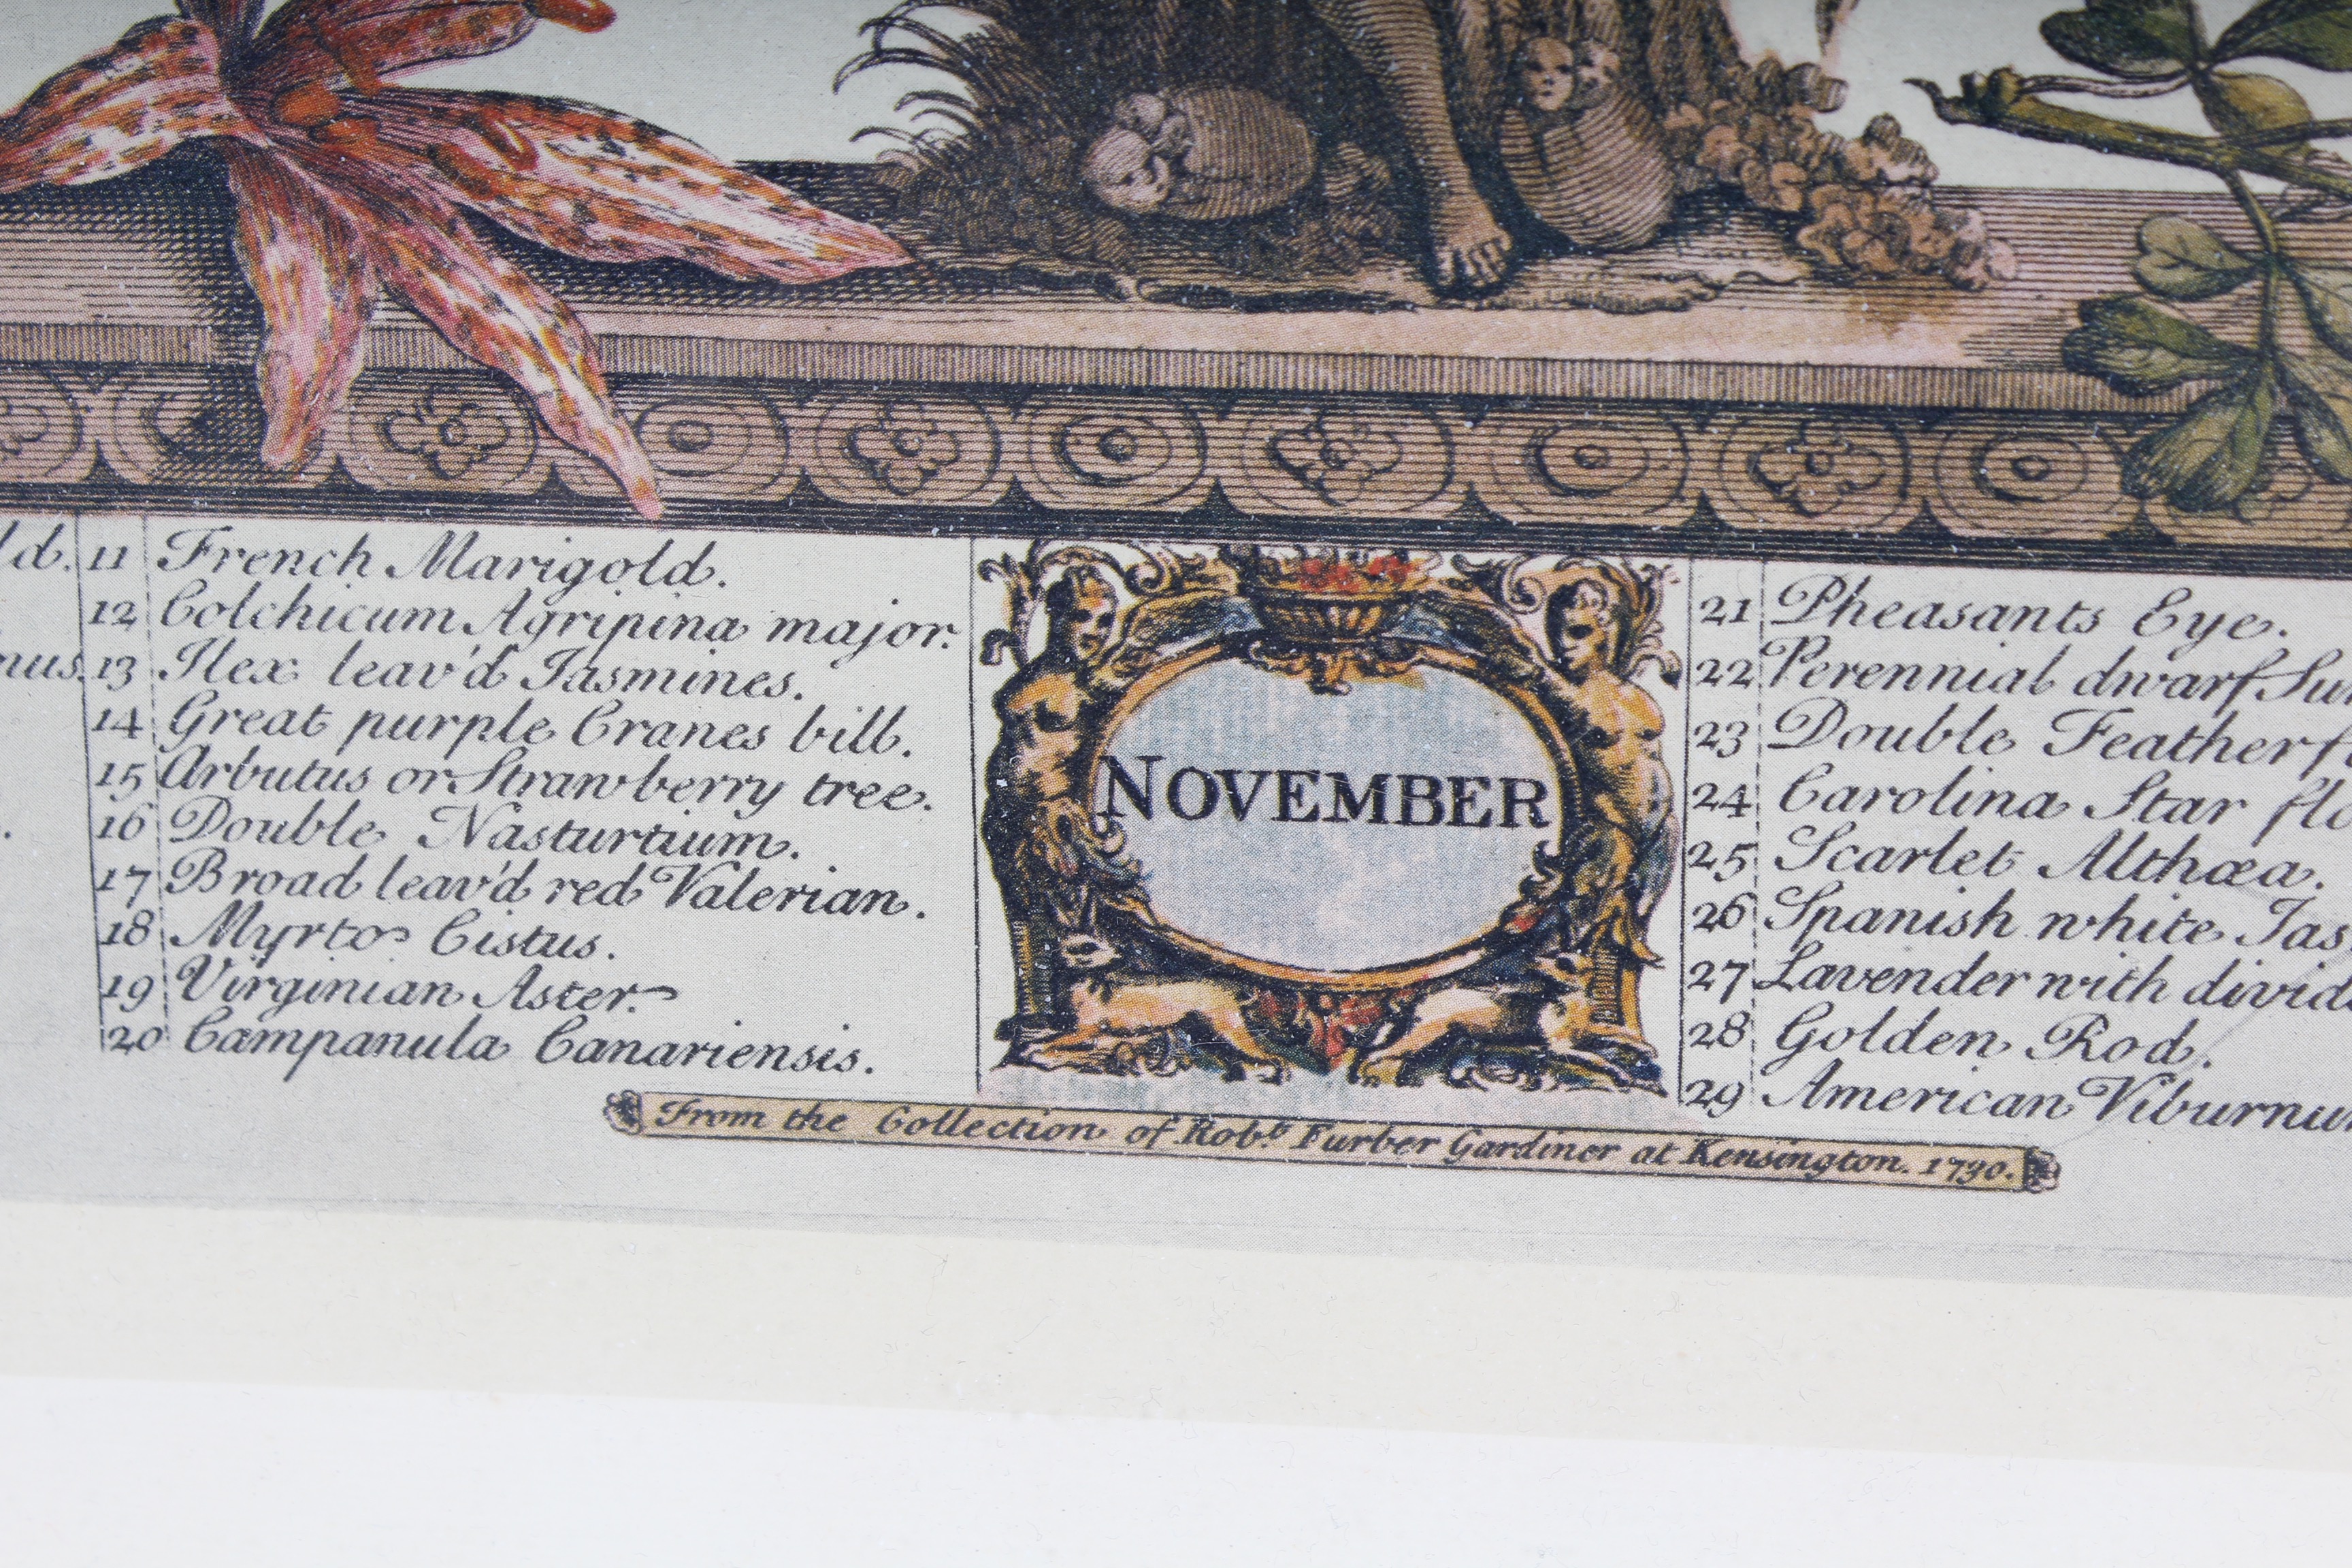 ld.
nus.
11 French Marigold.
12 Colchicum Agripina major.
13 Ilex leav'd Jasmines.
14 Great purple Cranes bill.
15 Arbutus or Strawberry tree.
16 Double Nasturtium.
17 Broad leav'd red Valerian.
18 Myrto Cistus.
19 Virginian Aster.
20 Campanula Canariensis.
NOVEMBER
21 Pheasants Eye.
22 Perennial dwarf Su
23 Double Featherf
24 Carolina Star flo
25 Scarlet Althæa.
26 Spanish white Jas
27 Lavender with divid
28 Golden Rod.
29 American Viburnu
From the Collection of Rob.t Furber Gardiner at Kensington. 1730.